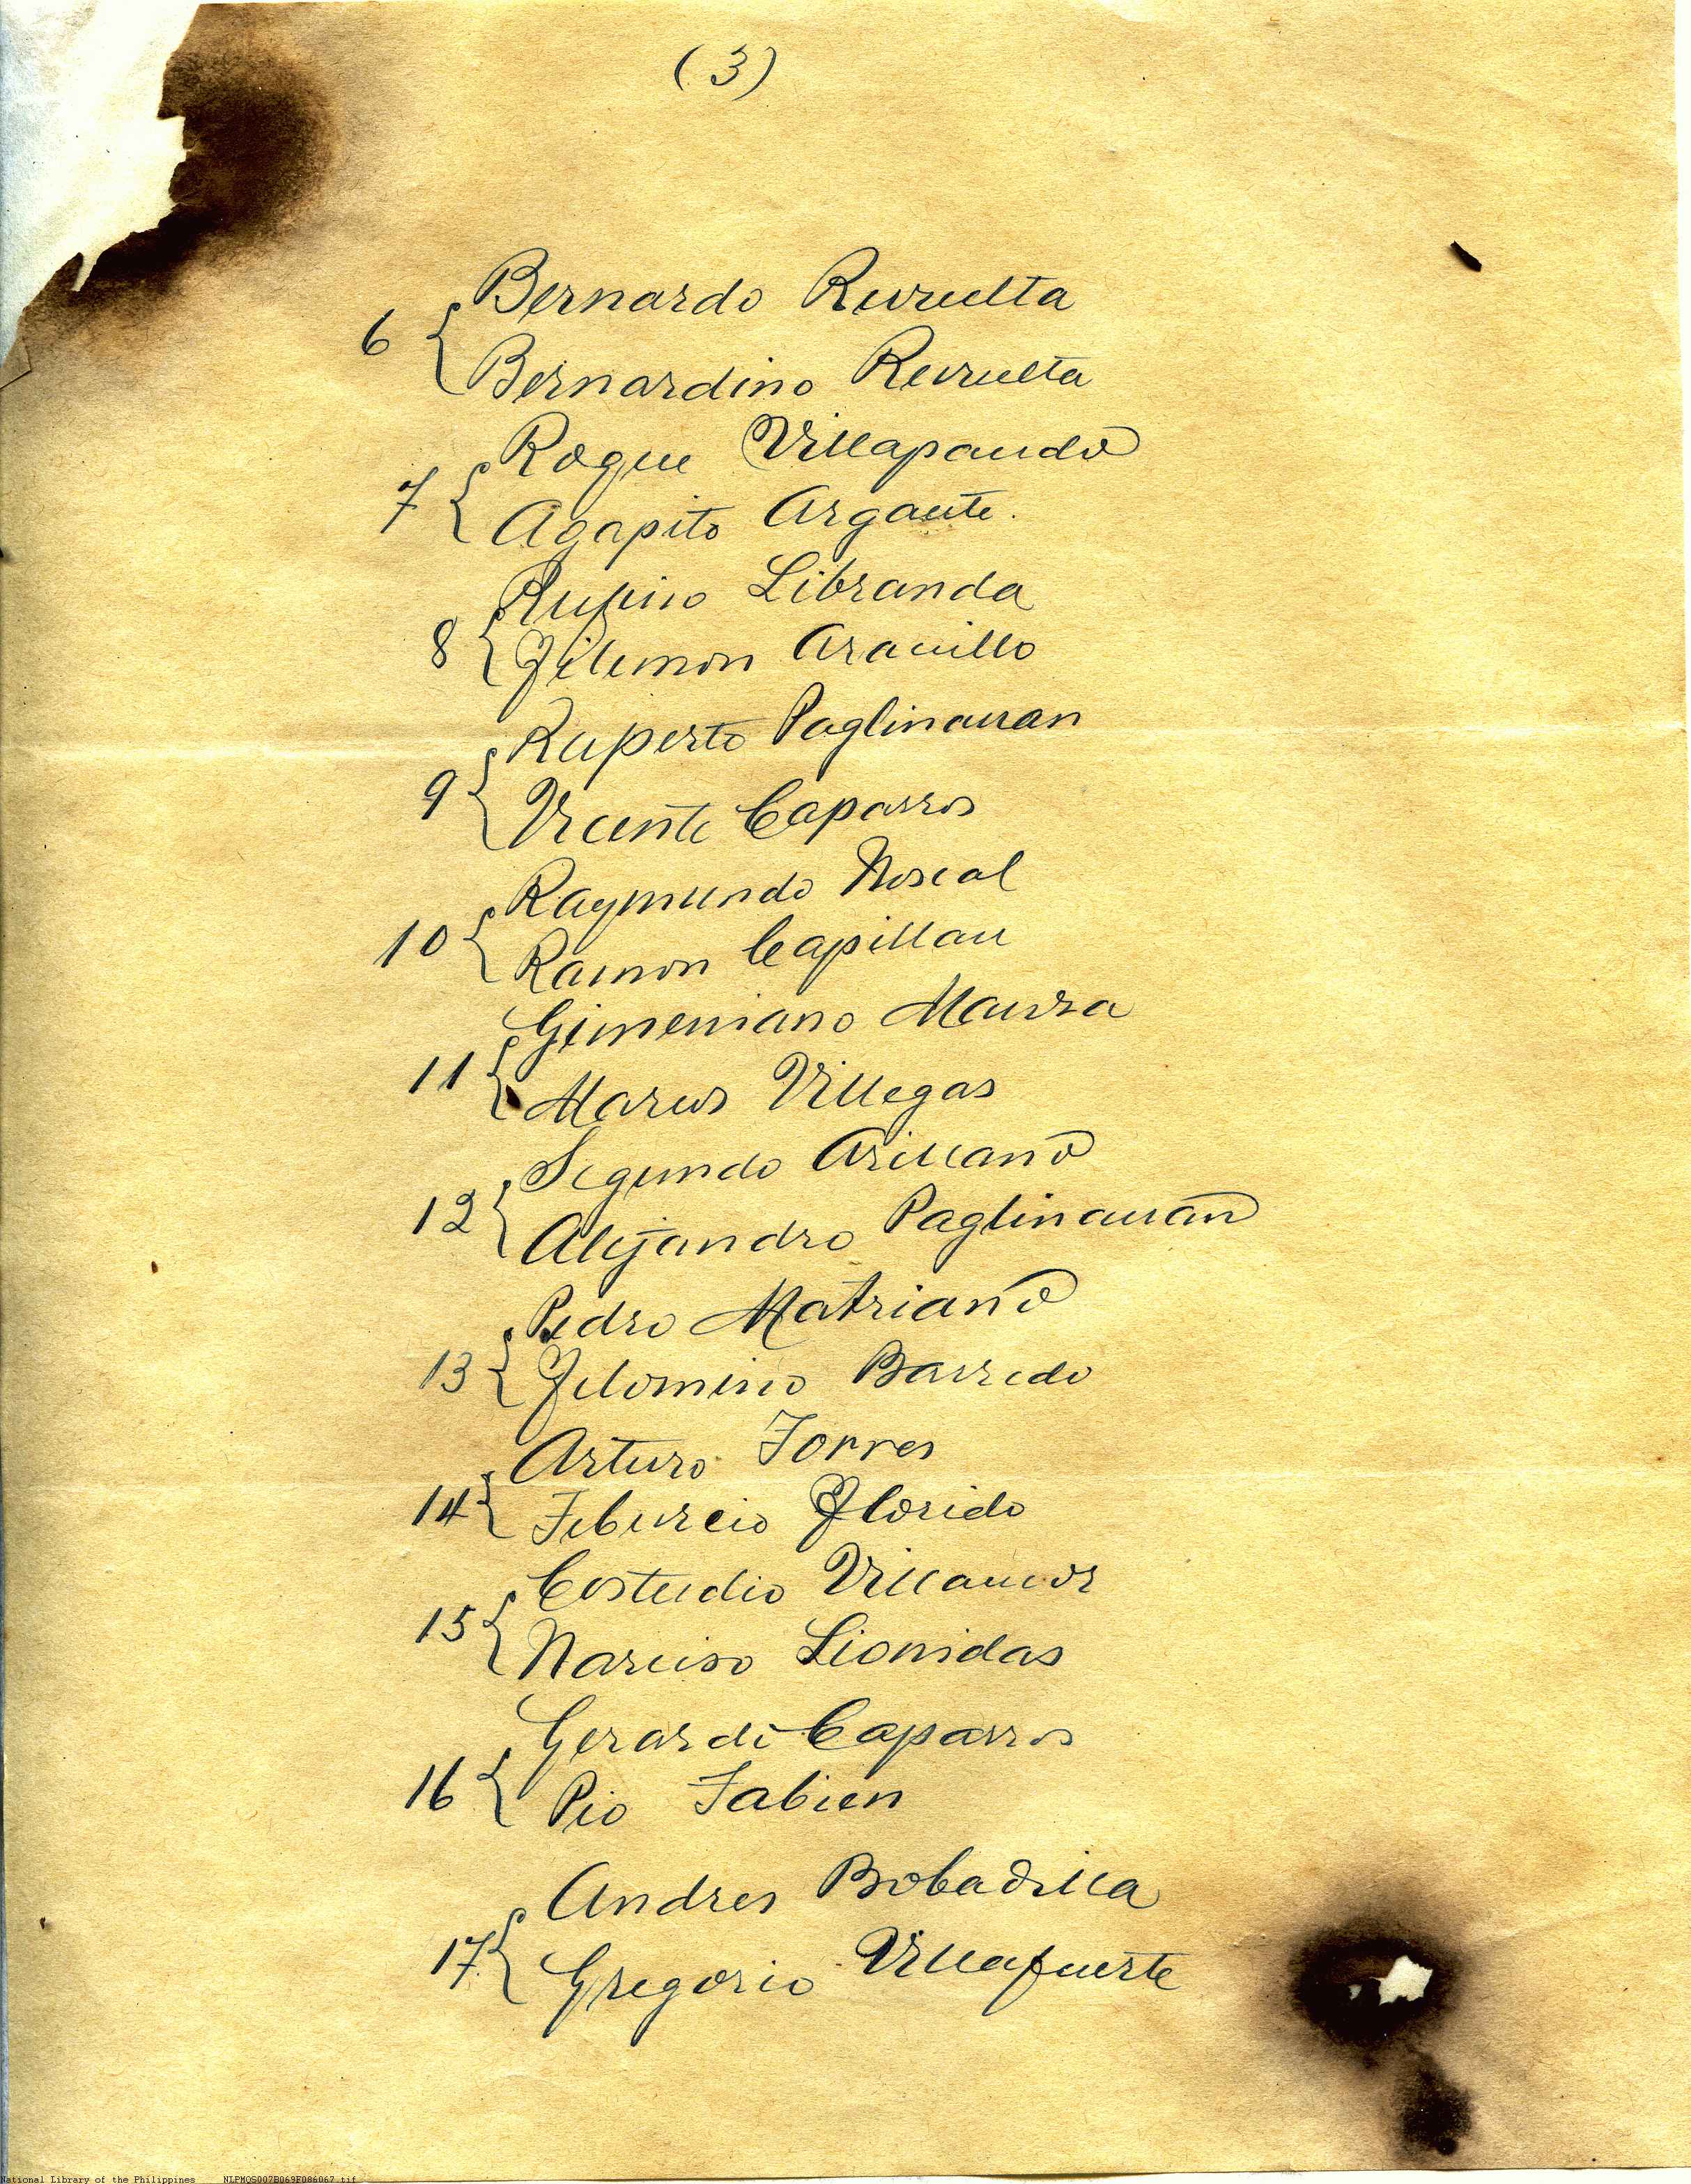 (3)
Bernardo Revuelta
6 { Bernardino Revuelta
Roque Villapando
7 { Agapito Argante.
Rufino Libranda
8 { Filemon Aranillo
Ruperto Paglinauan
9 { Vicente Caparros
Raymundo Noscal
10 { Ramon Capillan
Gimeniano
11 { Marcos Villegas
Segundo Arellano
12 { Alejandro Paglinauan
Pedro Matriano
13 { Filomino Barredo
Arturo Torres
14 { Tiburcio Florido
Costudio Villamor
15 { Narciso Lionidas
Gerardo Caparros
16 { Pio Fabien
Andres Bobadilla
17 { Gregorio Villafuerte
National Library of the Philippines NLPMQS007B069F086067.tif